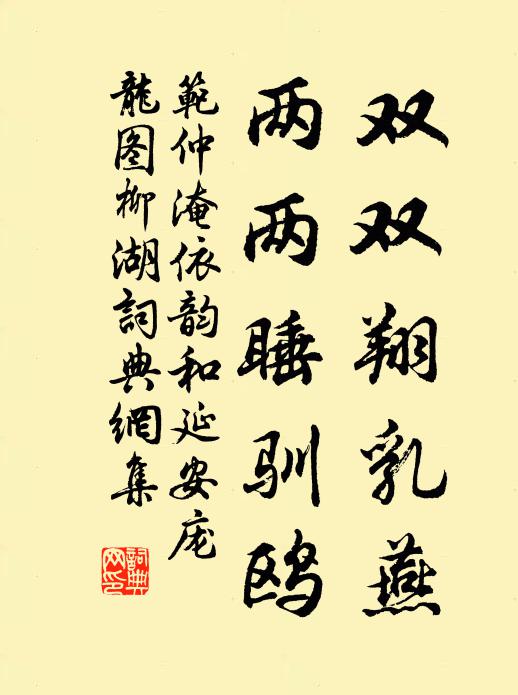 双双翔乳燕
两两睡驯鸥
範仲淹依韵和延安庞
龍图柳湖詞典網集
詞典网印